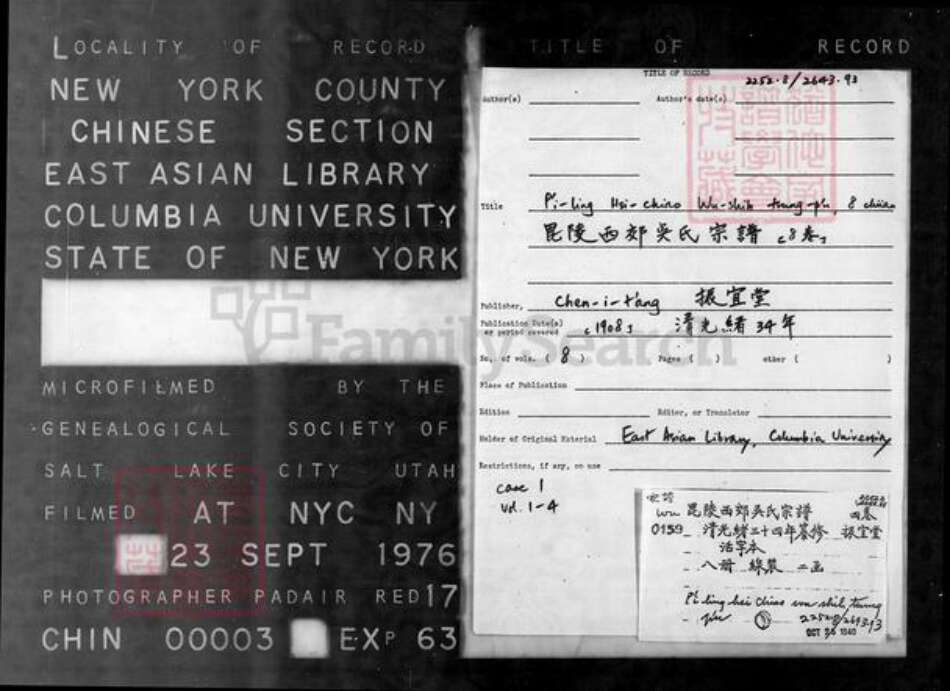 LOCALITY OF RECORD
NEW YORK COUNTY
CHINESE SECTION
EAST ASIAN LIBRARY
COLUMBIA UNIVERSITY
STATE OF NEW YORK
MICROFILMED BY THE
GENEALOGICAL SOCIETY OF
SALT LAKE CITY UTAH
FILMED AT NYC NY
23 SEPT 1976
PHOTOGRAPHER PADAIR RED 17
CHIN 00003 EXP 63
TITLE OF RECORD
TITLE OF RECORD
2252.8/2643.93
Author(s) Author's date(s)
Title P'i-ling Hsi-chiao Wu-shih tsung-p'u, 8 chüan
毘陵西郊吳氏宗譜 [8卷]
Publisher, Chen-i-t'ang 振宜堂
Publication Date(s)
or period covered [1908] 清光緒34年
No. of vols. ( 8 ) Pages ( ) other ( )
Place of Publication
Edition Editor, or Translator
Holder of Original Material East Asian Library, Columbia University
Restrictions, if any, on use
case 1
vol. 1-4
Wu 毘陵西郊吳氏宗譜
0159 清光緒三十四年 修 振宜堂
活字本
八冊 線裝 二函
P'i ling hsi chiao wu shih tsung
p'u 2252.8/2643.93
FamilySearch